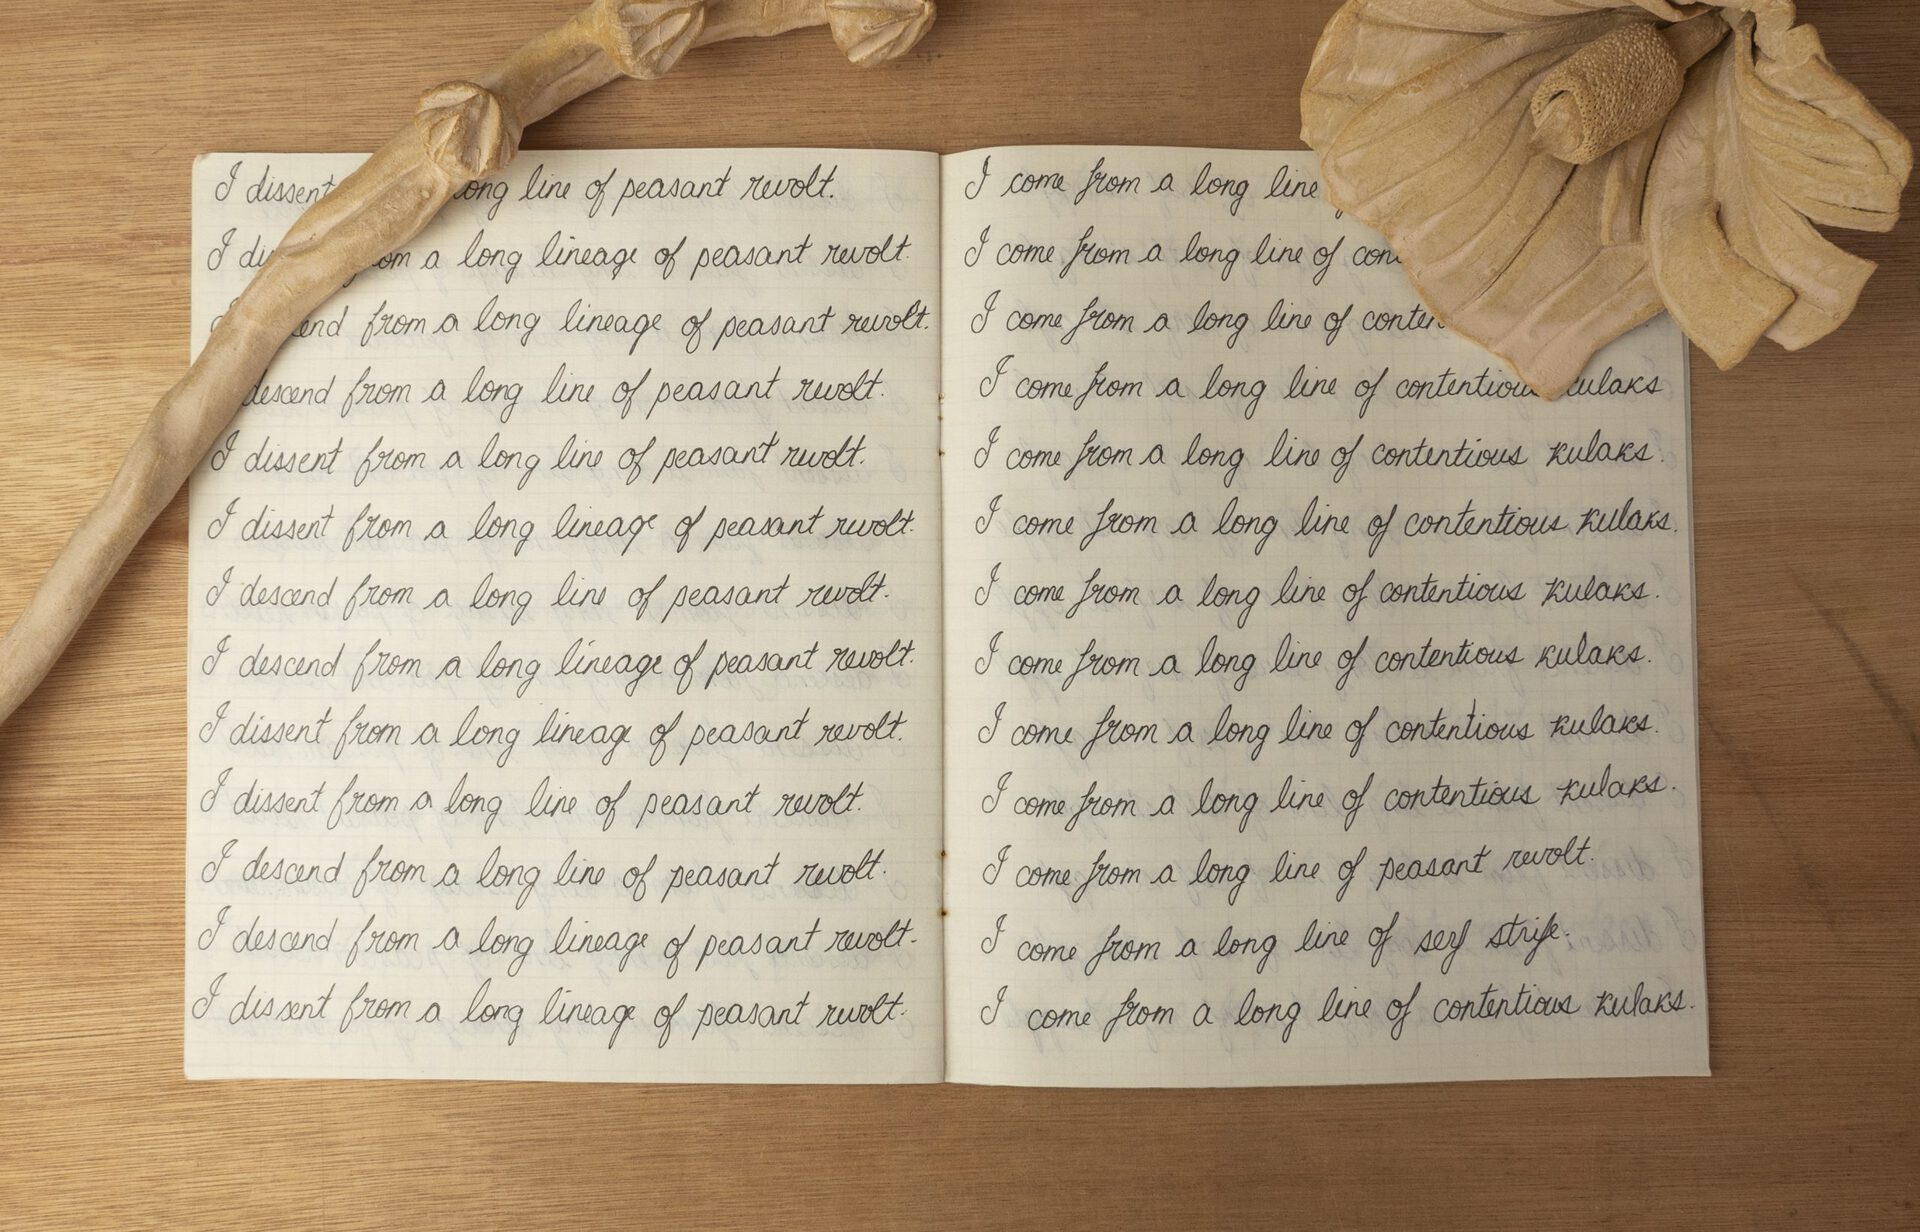 I dissent long line of peasant revolt.
I from a long lineage of peasant revolt.
descend from a long lineage of peasant revolt.
descend from a long line of peasant revolt.
I dissent from a long line of peasant revolt.
I dissent from a long lineage of peasant revolt.
I descend from a long line of peasant revolt.
I descend from a long lineage of peasant revolt.
I dissent from a long lineage of peasant revolt.
I dissent from a long line of peasant revolt.
I descend from a long line of peasant revolt.
I descend from a long lineage of peasant revolt.
I dissent from a long lineage of peasant revolt.
I come from a long line
I come from a long line of
I come from a long line of
I come from a long line of contentious kulaks
I come from a long line of contentious kulaks.
I come from a long line of contentious kulaks.
I come from a long line of contentious kulaks.
I come from a long line of contentious kulaks.
I come from a long line of contentious kulaks.
I come from a long line of contentious kulaks.
I come from a long line of peasant revolt.
I come from a long line of serf strife.
I come from a long line of contentious kulaks.